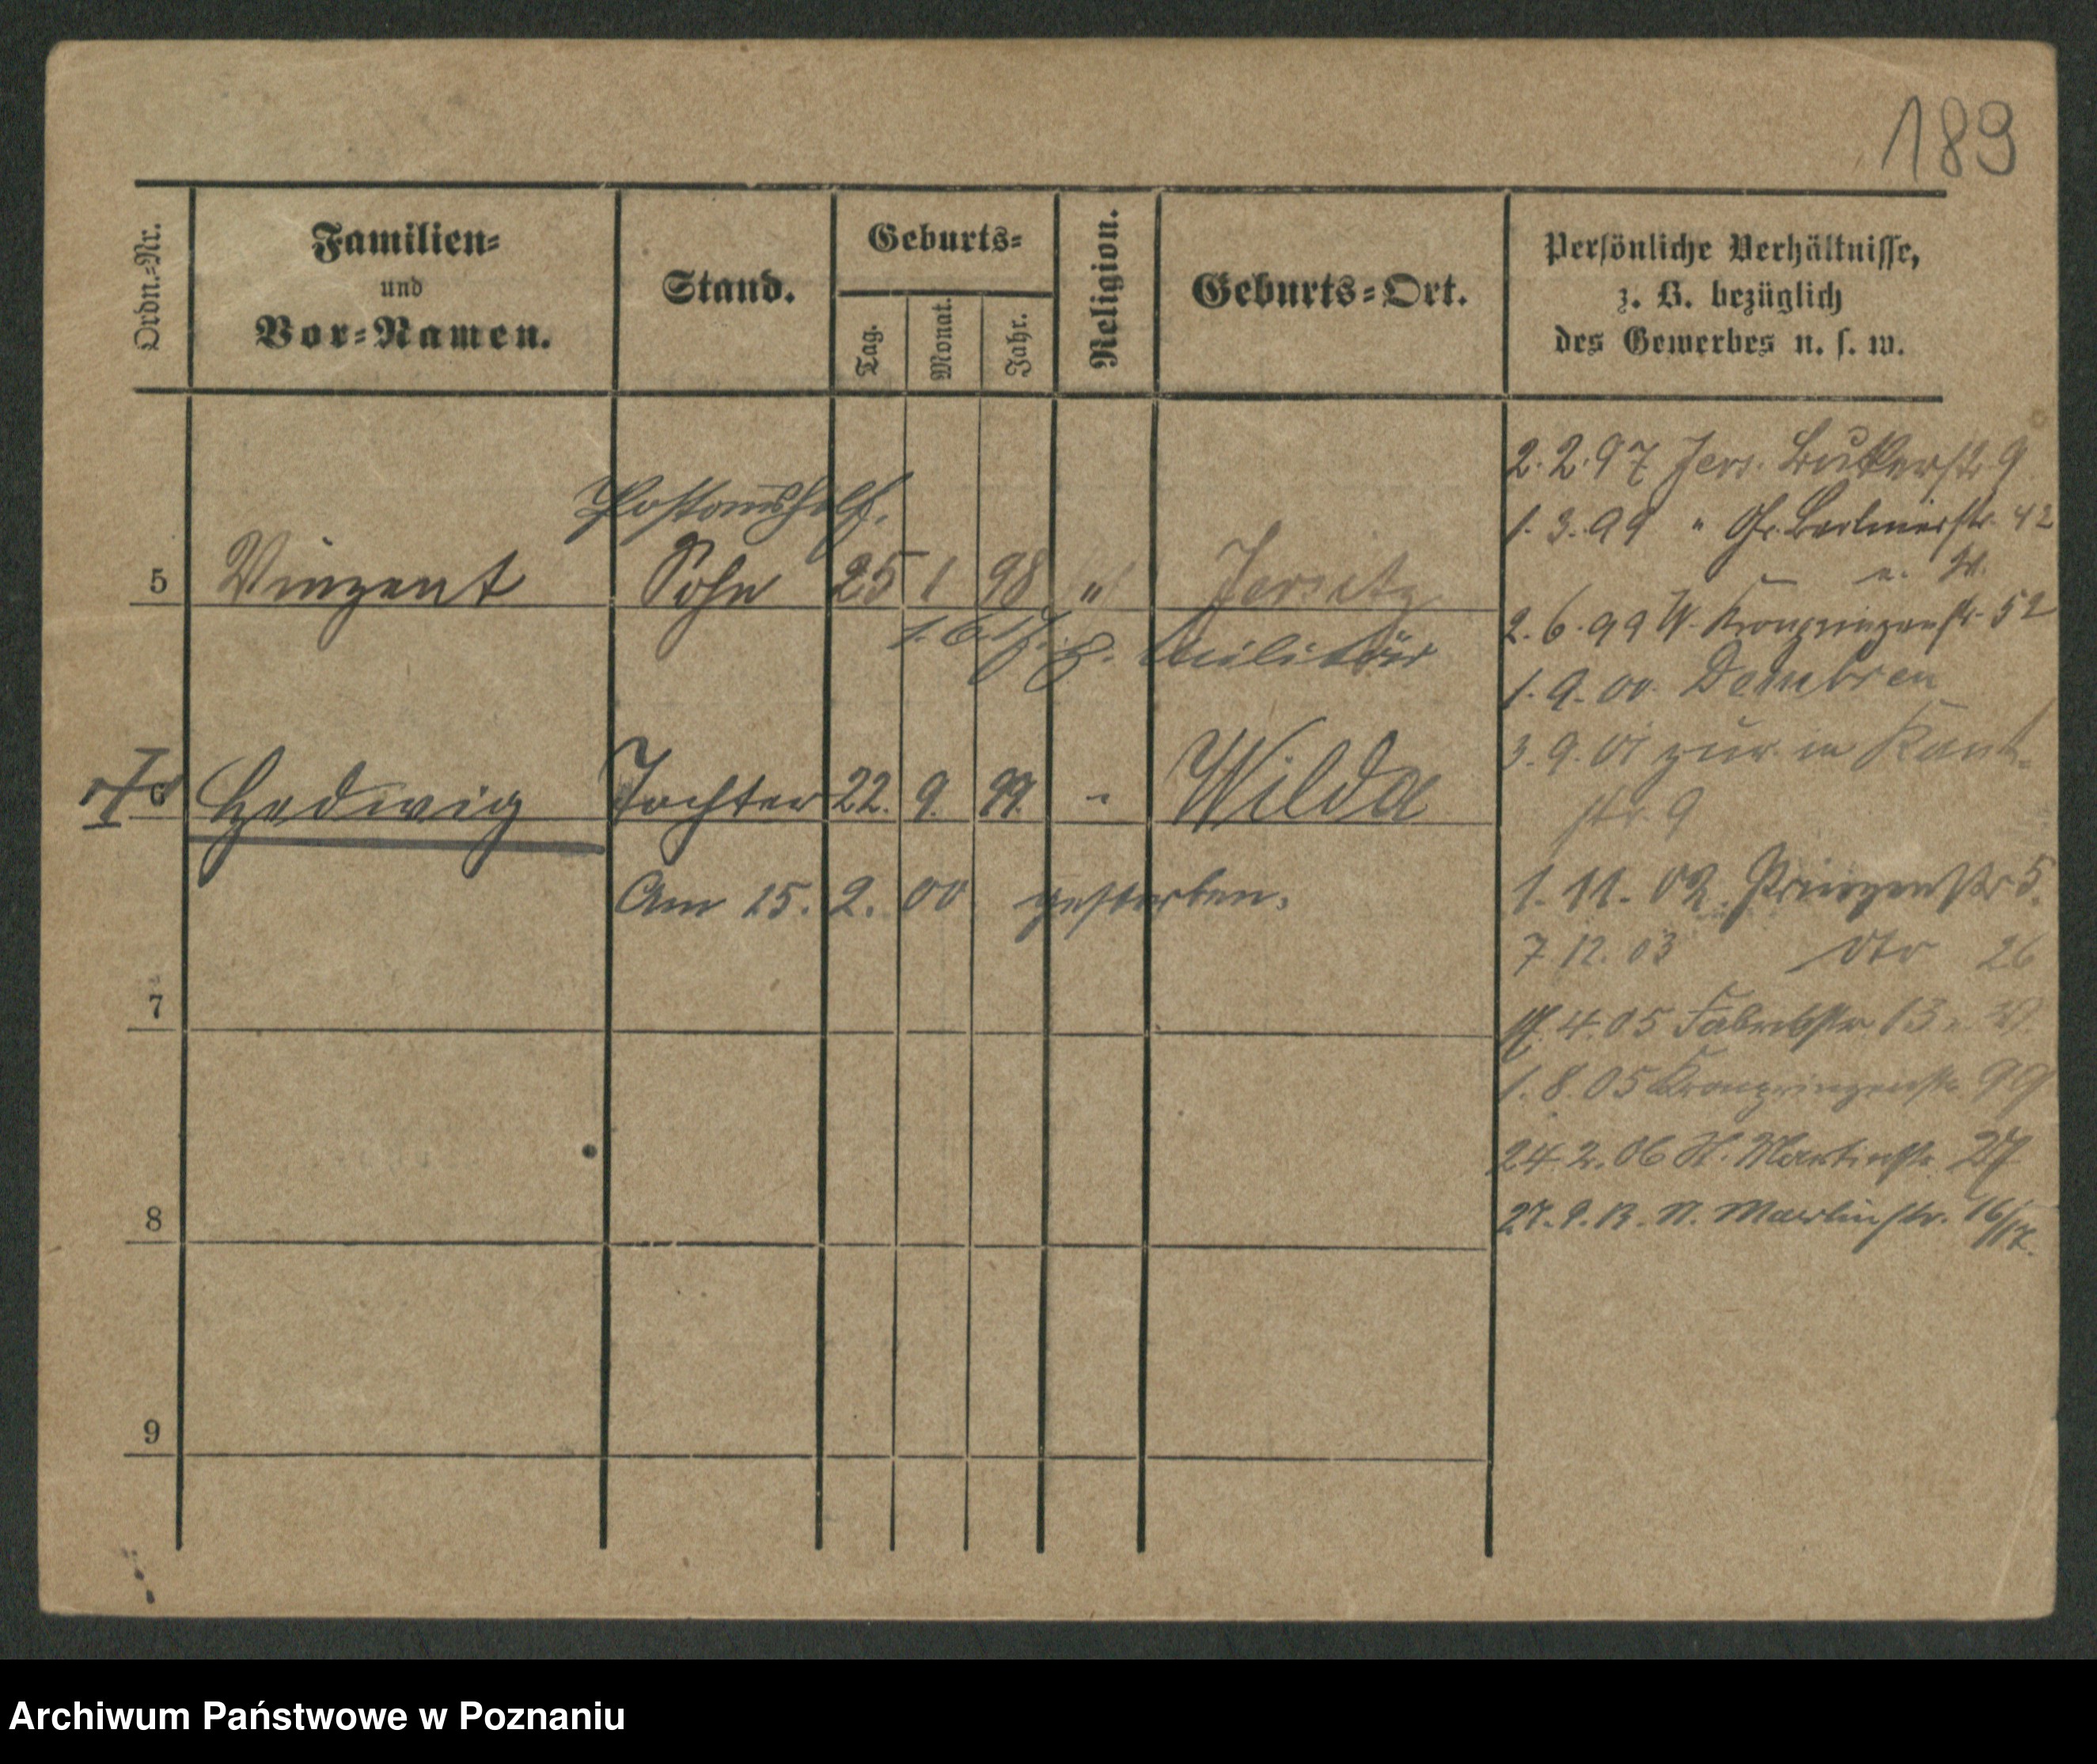 189
Ordn.-Nr.
Familien-
und
Vor-Namen.
Stand.
Geburts-
Tag.
Monat.
Jahr.
Religion.
Geburts-Ort.
Persönliche Verhältnisse,
z. B. bezüglich
des Gewerbes u. s. w.
Postaushelf.
5 Vinzent Sohn 25 1 98 " Jersitz
1. 6. 17. z. Militär
6 Hedwig Tochter 22. 9. 99. " Wilda
Am 15. 2. 00 gestorben.
7
8
9
2. 2. 97 Jers. Bukerstr 9
1. 3. 99 " Gr. Berlinerstr. 42
2. 6. 99 W. Kronprinzenstr. 52
1. 9. 00. Dembsen
3. 9. 01 zur. in Kant-
str. 9
1. 11. 02. Prinzenstr 5.
7 12. 03 dto 26
4. 05 Fabrikstr. 13.
1. 8. 05 Kronprinzenstr. 99
24 2. 06 St. Martinstr. 27
27. 9. 13. St. Martinstr. 16/17.
Archiwum Państwowe w Poznaniu